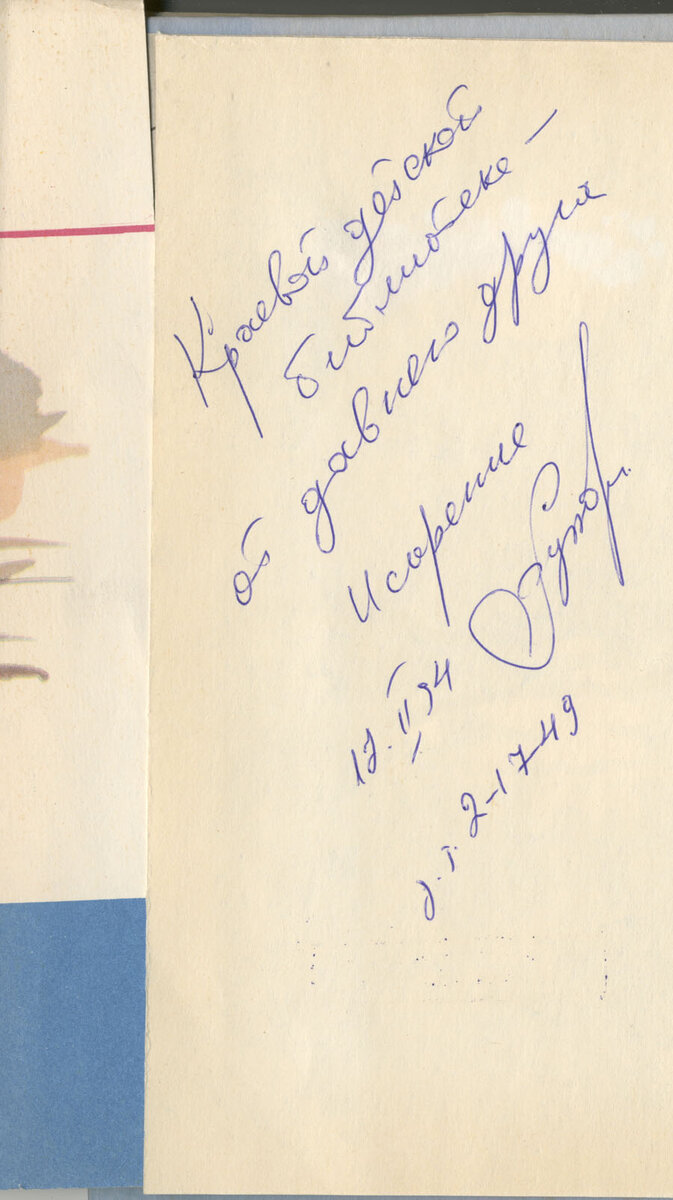 Краевой детской
библиотеке —
от давнего друга
Искренне
12.II 94
д.т. 2-17-49